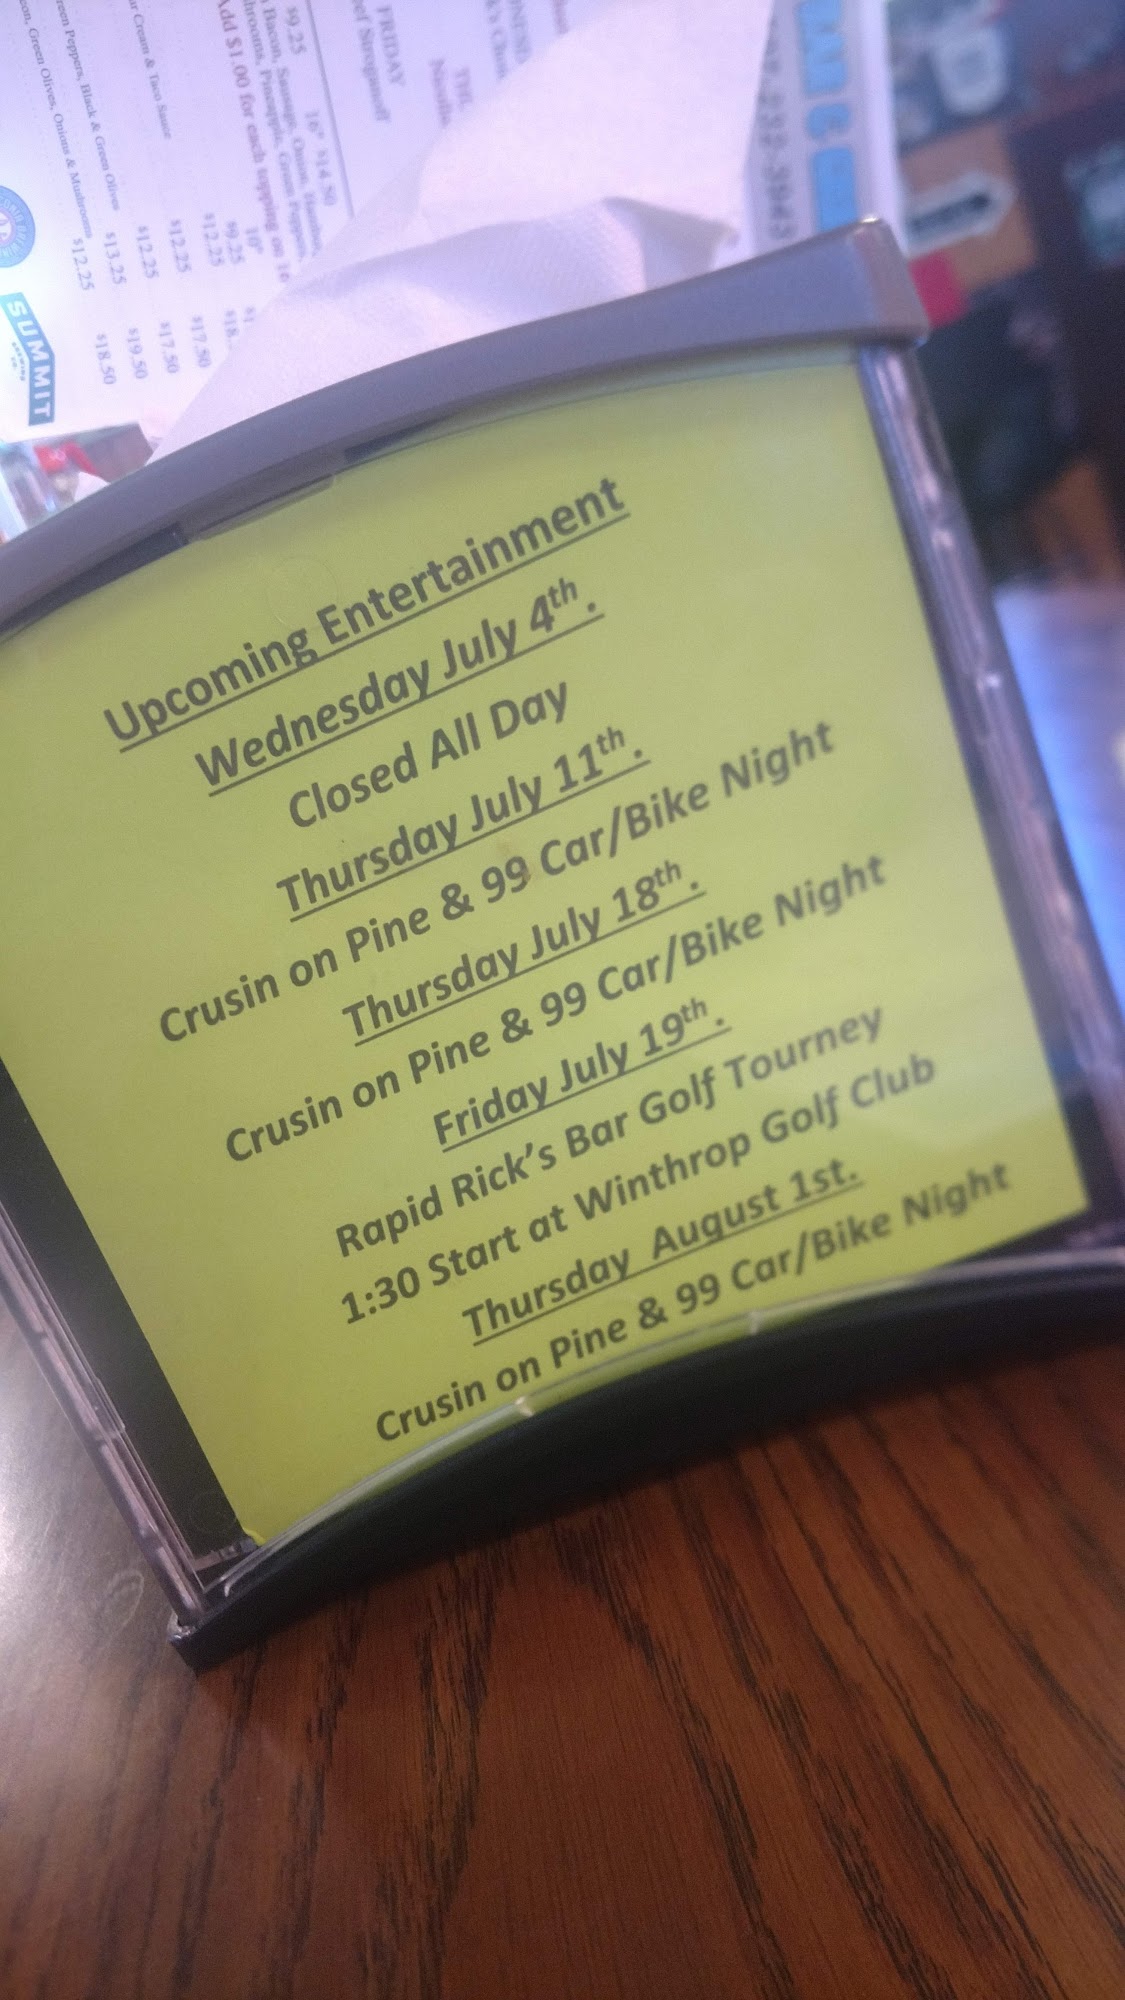 Upcoming Entertainment
Wednesday July 4th.
Closed All Day
Thursday July 11th.
Crusin on Pine & 99 Car/Bike Night
Thursday July 18th.
Crusin on Pine & 99 Car/Bike Night
Friday July 19th.
Rapid Rick's Bar Golf Tourney
1:30 Start at Winthrop Golf Club
Thursday August 1st.
Crusin on Pine & 99 Car/Bike Night
FRIDAY
Stroganoff
$9.25 16" $14.50
Bacon, Sausage, Onion,
Pineapple, Green Peppers,
Add $1.00 for each topping on 16
10"
$9.25
$12.25
$12.25 $17.50
Cream & Taco Sauce $12.25 $17.50
Peppers, Black & Green Olives $13.25 $19.50
Green Olives, Onions & Mushrooms $12.25 $18.50
SUMMIT
BREWING
CO.